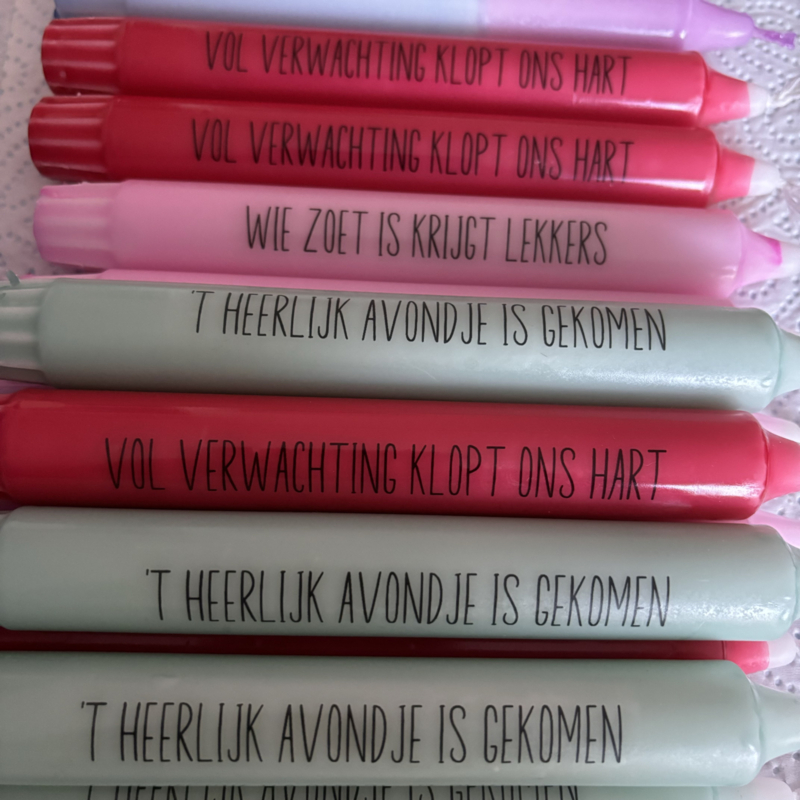 VOL VERWACHTING KLOPT ONS HART
VOL VERWACHTING KLOPT ONS HART
WIE ZOET IS KRIJGT LEKKERS
'T HEERLIJK AVONDJE IS GEKOMEN
VOL VERWACHTING KLOPT ONS HART
'T HEERLIJK AVONDJE IS GEKOMEN
'T HEERLIJK AVONDJE IS GEKOMEN
'T HEERLIJK AVONDJE IS GEKOMEN